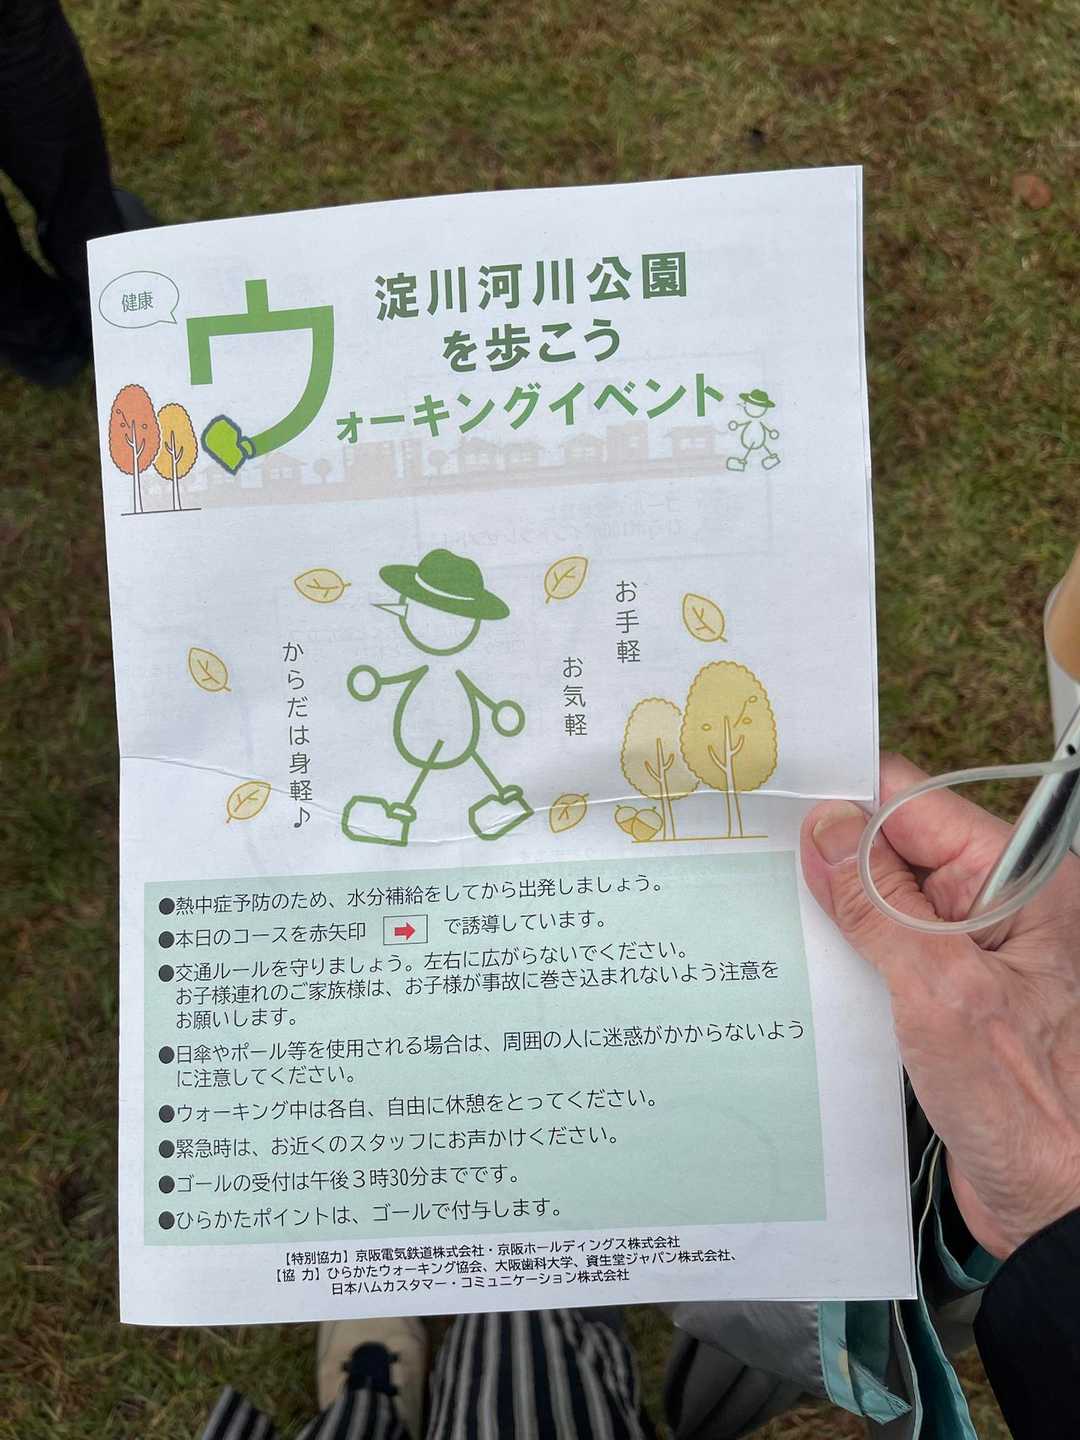 健康
淀川河川公園
を歩こう
ウォーキングイベント
お手軽
お気軽
からだは身軽♪
●熱中症予防のため、水分補給をしてから出発しましょう。
●本日のコースを赤矢印 ➡ で誘導しています。
●交通ルールを守りましょう。左右に広がらないでください。
お子様連れのご家族様は、お子様が事故に巻き込まれないよう注意を
お願いします。
●日傘やポール等を使用される場合は、周囲の人に迷惑がかからないよう
に注意してください。
●ウォーキング中は各自、自由に休憩をとってください。
●緊急時は、お近くのスタッフにお声かけください。
●ゴールの受付は午後3時30分までです。
●ひらかたポイントは、ゴールで付与します。
【特別協力】京阪電気鉄道株式会社・京阪ホールディングス株式会社
【協 力】ひらかたウォーキング協会、大阪歯科大学、資生堂ジャパン株式会社、
日本ハムカスタマー・コミュニケーション株式会社